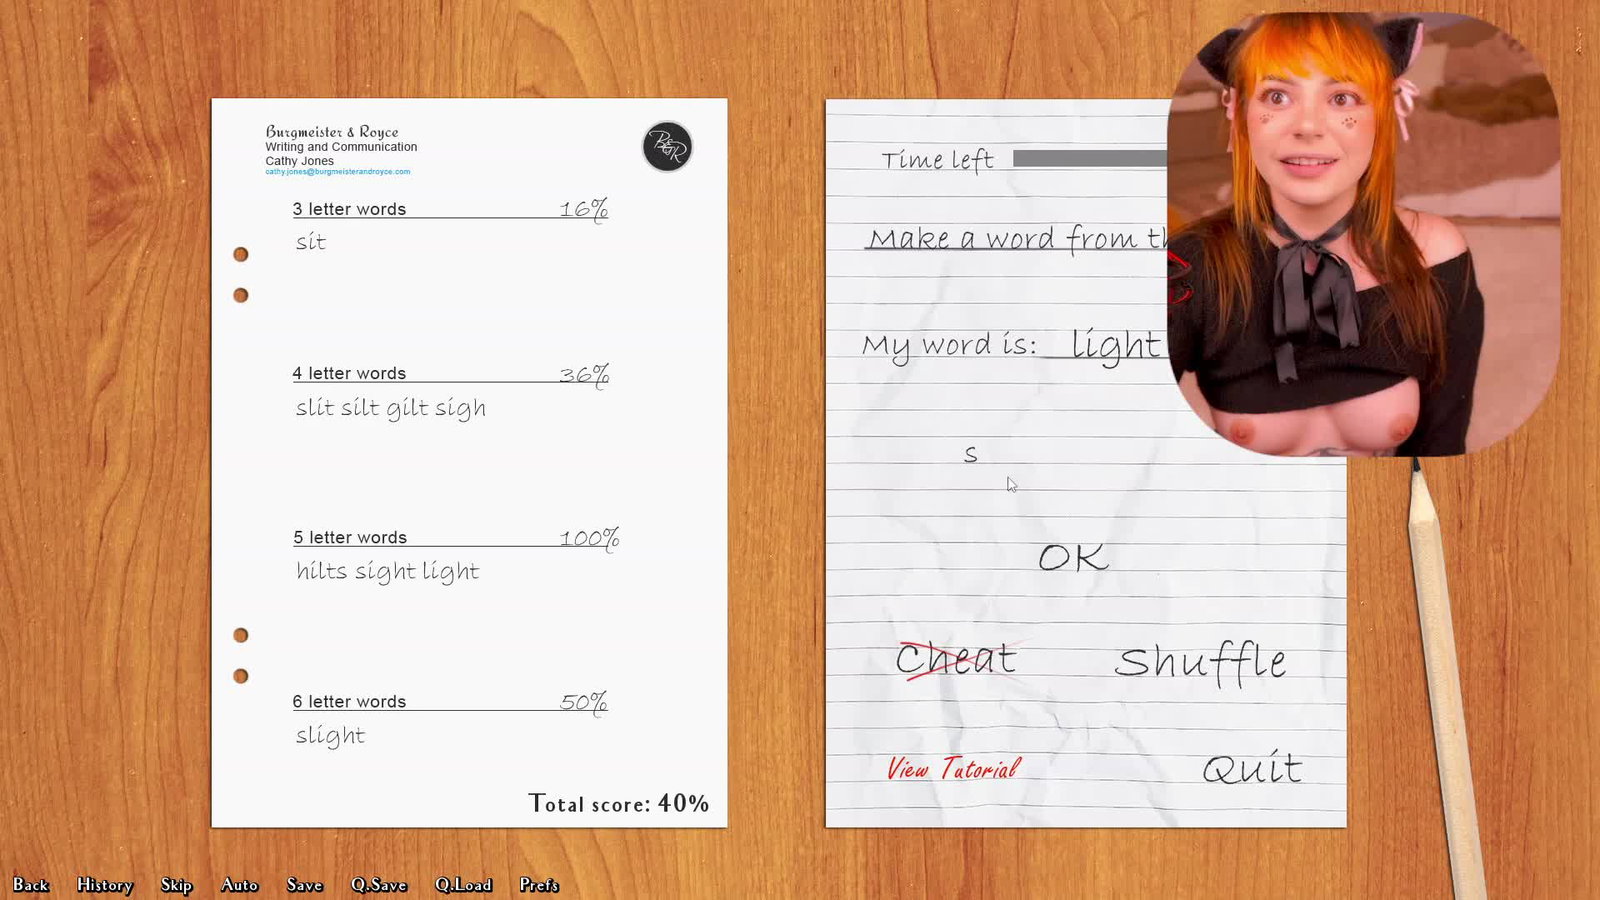 Burgmeister & Royce
Writing and Communication
Cathy Jones
cathy.jones@burgmeisterandroyce.com
B&R
3 letter words 16%
sit
4 letter words 36%
slit silt gilt sigh
5 letter words 100%
hilts sight light
6 letter words 50%
slight
Total score: 40%
Time left
Make a word from
My word is: light
s
OK
Cheat Shuffle
View Tutorial Quit
Back History Skip Auto Save Q.Save Q.Load Prefs